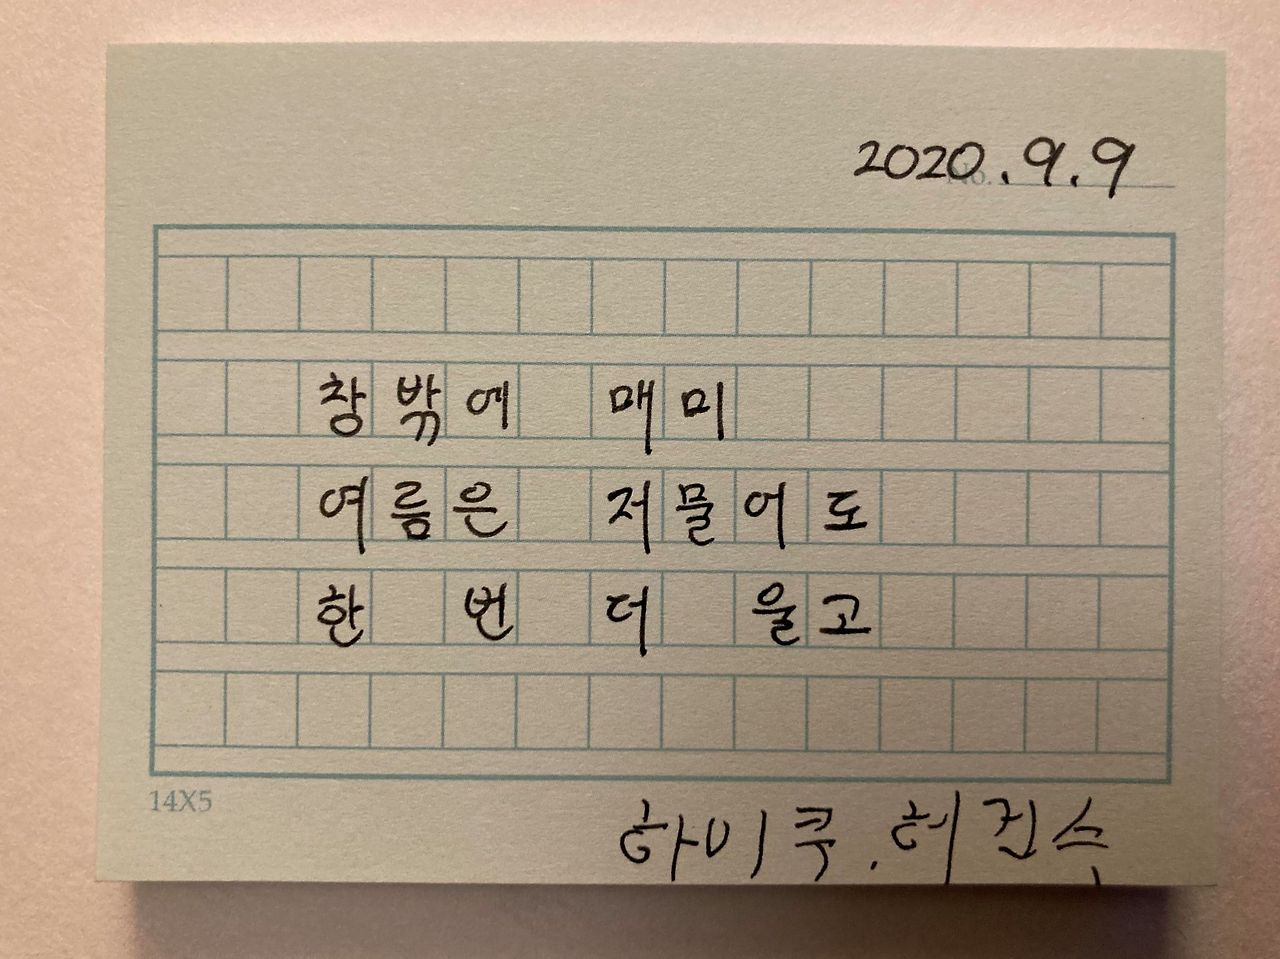 2020.9.9
No.
창밖에 매미
여름은 저물어도
한 번 더 울고
14X5
하이쿠. 허진수